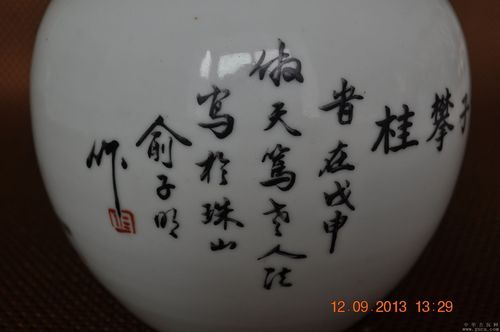 子攀桂
旹在戊申
倣天篤老人法
寫於珠山
俞子明
作
12.09.2013 13:29